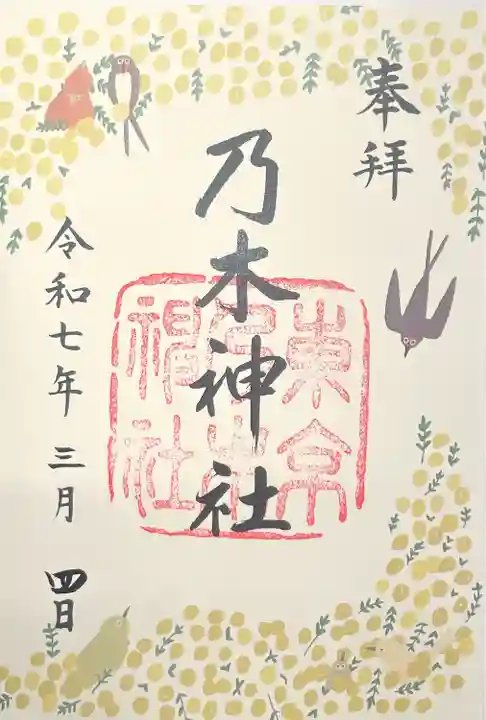 奉拝
乃木神社
東京乃木神社
令和七年 三月 四日